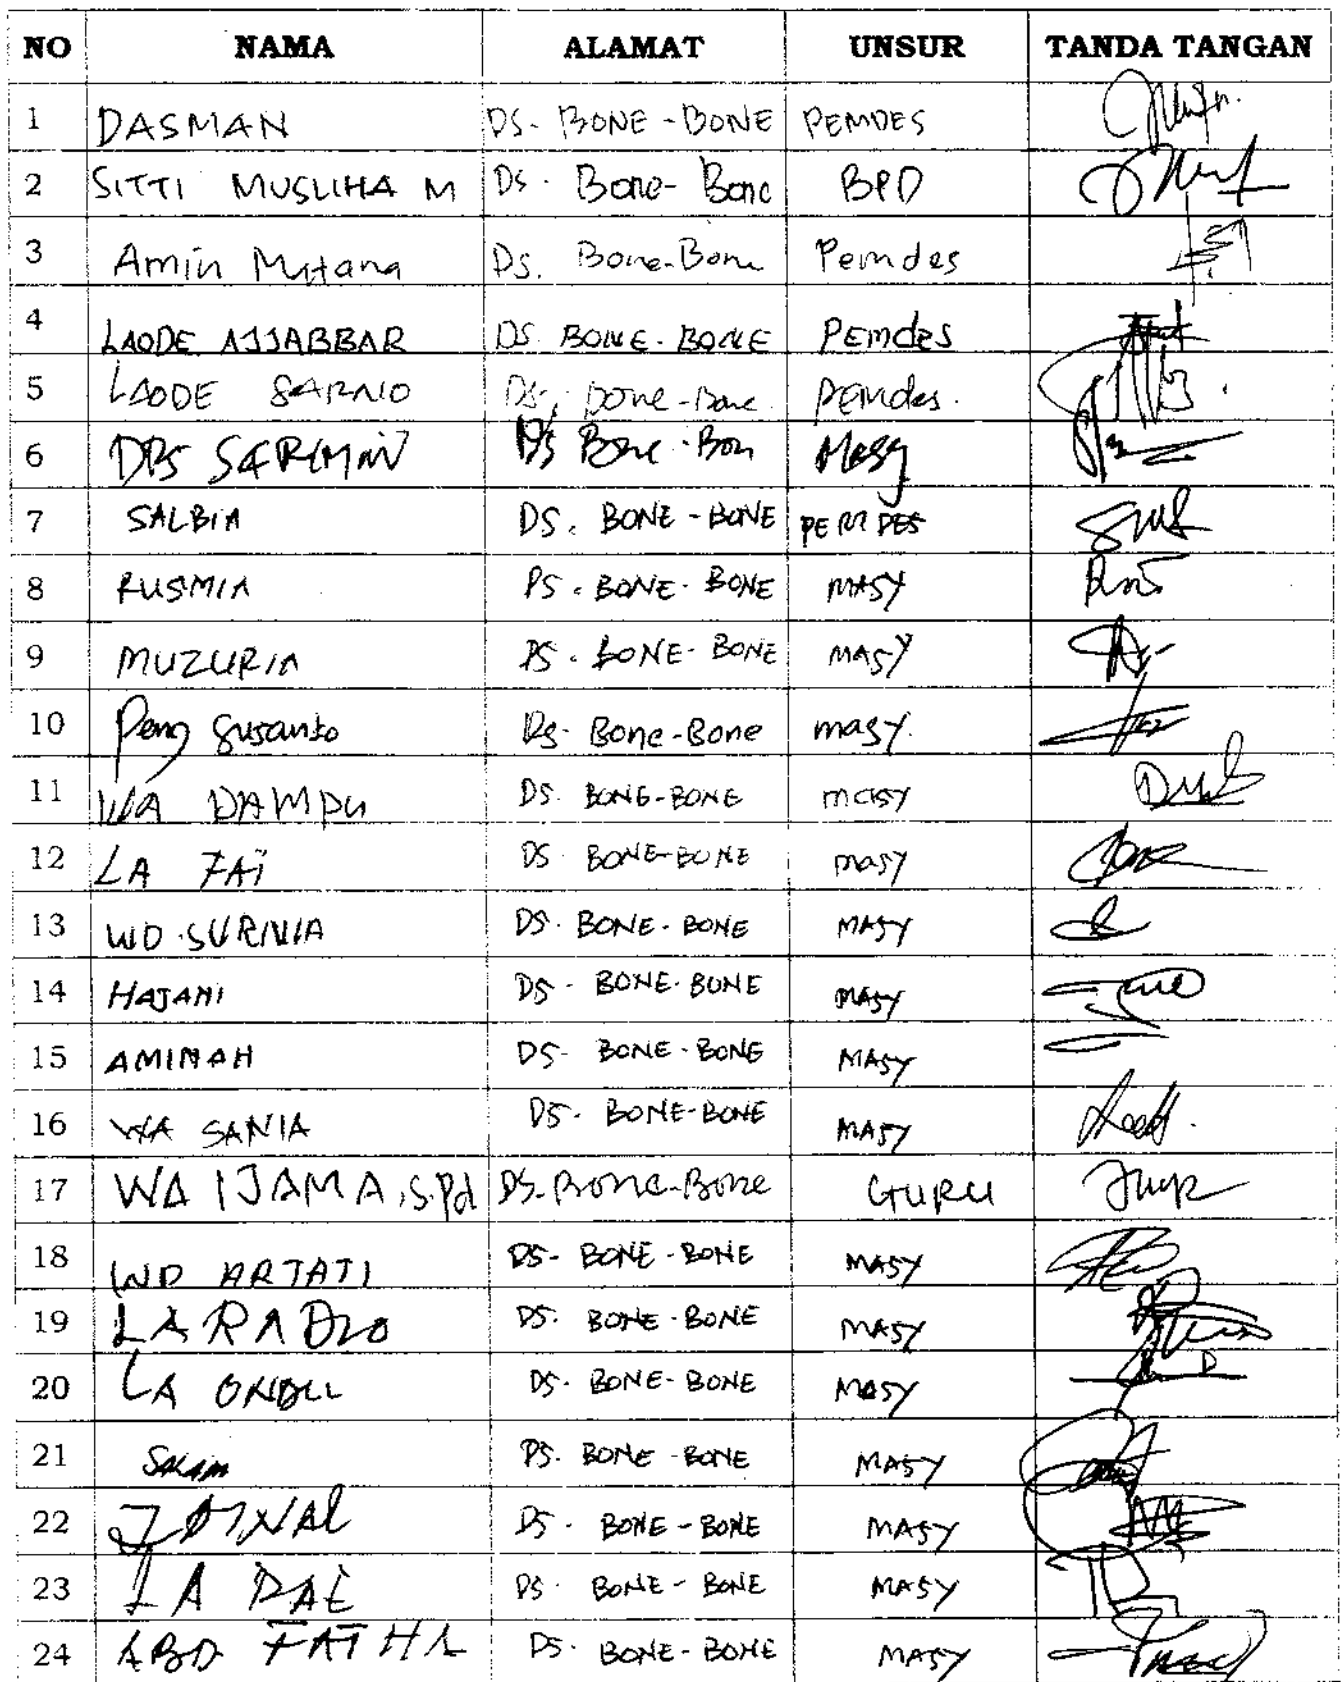 NO NAMA ALAMAT UNSUR TANDA TANGAN
1 DASMAN DS. BONE-BONE PEMDES
2 SITTI MUSLIHA M DS. Bone-Bone BPD
3 Amin Mutana Ds. Bone-Bone Pemdes
4 LAODE AJJABBAR DS. BONE-BONE PEMDES
5 LAODE SARNIO Ds. Bone-Bone Pemdes.
6 DRS SARIMIN Ds Bone-Bon Masy
7 SALBIA DS. BONE-BONE PEMDES
8 RUSMIA DS. BONE-BONE MASY
9 MUZURIA DS. BONE-BONE MASY
10 Susanto Ds. Bone-Bone masy.
11 WA DAMPU DS. BONE-BONE masy
12 LA DS. BONE-BONE masy
13 WD. SURNIA DS. BONE-BONE MASY
14 HAJANI DS. BONE-BONE MASY
15 AMINAH DS. BONE-BONE MASY
16 WA SANIA DS. BONE-BONE MASY
17 WA IJAMA, S.Pd DS. Bone-Bone GURU
18 WD ARTATI DS. BONE-BONE MASY
19 LA DS. BONE-BONE MASY
20 LA DS. BONE-BONE MASY
21 SALAM DS. BONE-BONE MASY
22 ZAINAL DS. BONE-BONE MASY
23 LA DS. BONE-BONE MASY
24 ABD DS. BONE-BONE MASY